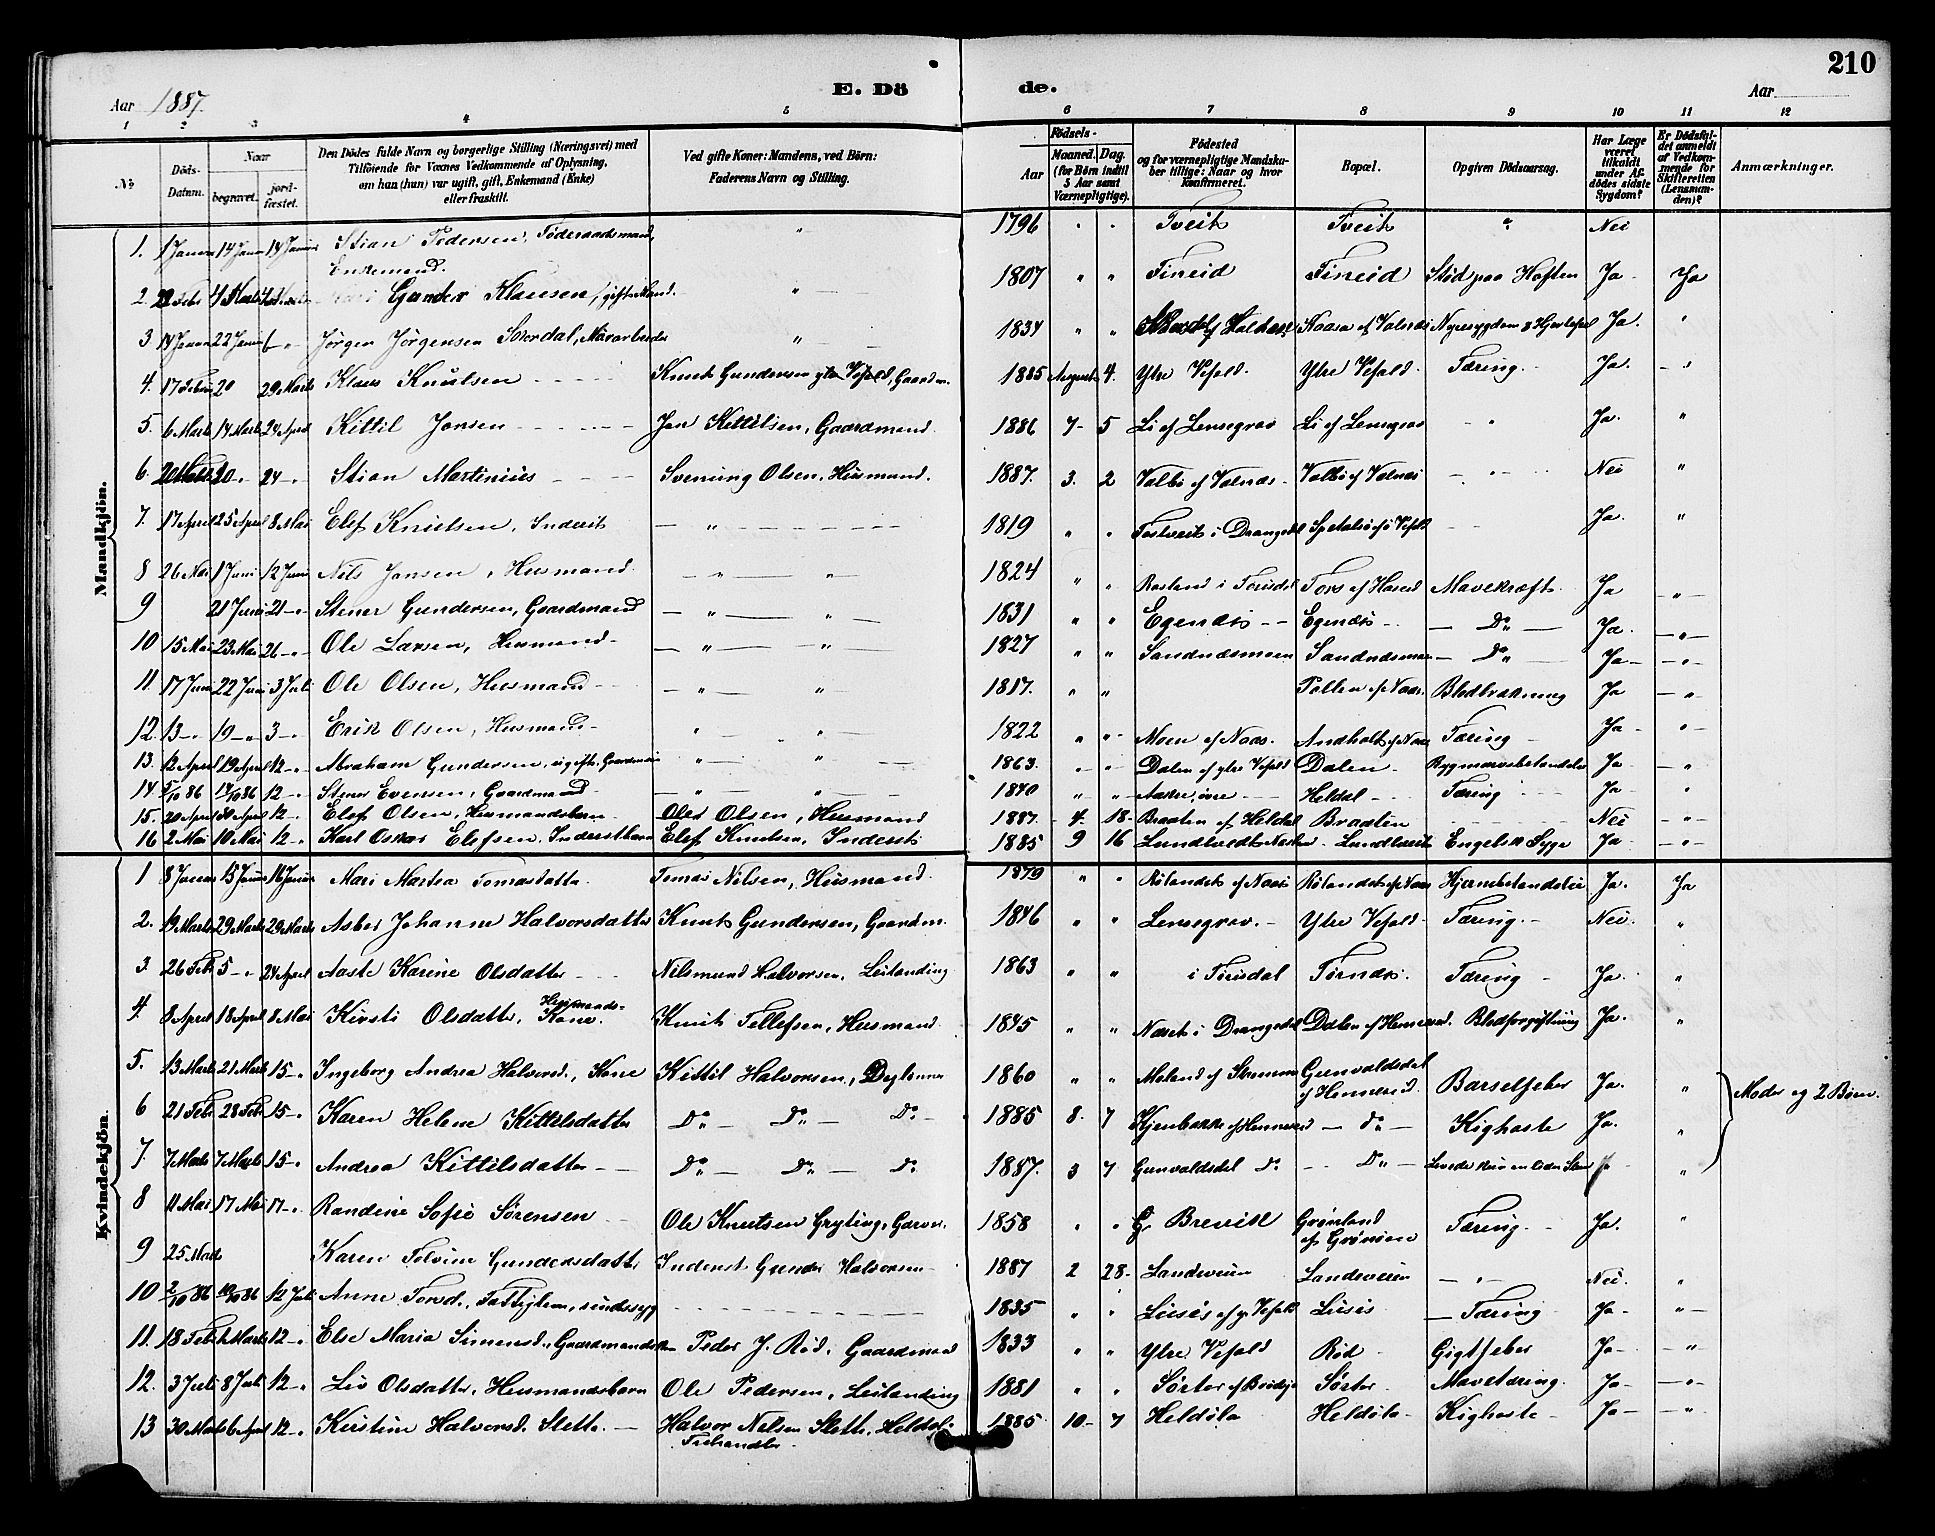 210
Aar 1887.
E. Dö
de.
Aar
1 2 3 4 5
6 7 8 9 10 11 12
№
Döds-Datum.
Naar
begravet.
jord-fæstet.
Den Dödes fulde Navn og borgerlige Stilling (Næringsvei) med
Tilföiende for Voxnes Vedkommende af Oplysning,
om han (hun) var ugift, gift, Enkemand (Enke)
eller fraskilt.
Ved gifte Koner: Mandens, ved Börn:
Faderens Navn og Stilling.
Födsels-
Aar
Maaned. Dag.
(for Börn indtil
5 Aar samt
Værnepligtige).
Födested
og for værnepligtige Mandska-
ber tillige: Naar og hvor
konfirmeret.
Bopæl.
Opgiven Dödsaarsag.
Har Læge
været
tilkaldt
under Af-
dödes sidste
Sygdom?
Er Dödsfal-
det anmeldt
af Vedkom-
mende for
Skifteretten
(Lensman-
den)?
Anmærkninger.
Mandkjön.
1. 1 Januar 14 Janr 14 Januar Stian Pedersen, Föderaadsmand, Enkemand. " 1796 " " Tveit Tveit " Nei
2 4 Marts Gunder Klausen, gift Mand. " 1807 " " Fineid Fineid Stöd paa Hoften Ja Ja
3 14 Januar 22 Januar Jørgen Jørgensen " 1834 " " Ja. "
4. 17 Februar 20 29 Marts Klaus Knutsen Knut Gundersen ytre Vefald, Gaardm. 1885 August 4. Ytre Vefald. Ytre Vefald. Tæring. Ja. "
5. 6 Marts 14 Marts 24 April Kittil Jonsen Jon Kittilsen, Gaardmand 1886 7 5 Li af Lensegrav Li af Lensegrav " Ja. "
6. 20 Marts 20 " 24 " Stian Martinius Svenung Olsen, Husmand. 1887. 3. 2 Valbö af Valnæs Valbö af Valnæs " Nei "
7. 17 April 25 April 8 Mai Elef Knutsen, Inderst " 1819 " " i Drangedal Ja. "
8 26 Mai 1 Juni 12 Juni Nils Jansen, Husmand " " 1824 " " i Törisdal Mavekræft Ja "
9 21 Juni 21 " Stener Gundersen, Gaardmand " " 1831 " " Egenæs Egenæs Do Ja. "
10 15 Mai 23 Mai 26 " Ole Larsen, Husmand " " 1827 " " Sandnæsmoen Sandnæsmoen Do Ja "
11. 17 Juni 22 Juni 3 Juli Ole Olsen, Husmand " " 1817. " " Pollen af Naas Blodbrækning Ja "
12. 13 " 19 " 3 " Erik Olsen, Husmand " " 1822 " " Moen af Naas. Andholt af Naas Tæring Ja "
13. 12 April 19 April 12 " Abraham Gundersen, ugift, Gaardmand " " 1863. " " Dalen af ytre Vefald Dalen Rygmarvsbetændelse Ja "
14 5/10 86 14/10 86 12 " Stener Evensen, Gaardmand " " 1840 " " Heldal Tæring Ja "
15. 20 April 30 April 12 " Elef Olsen, Husmandsbarn Olsen, Husmand 1887. 4. 18 Braaten af Heldal Braaten Nei "
16 2 Mai 10 Mai 12 " Karl Oskar Elefsen, Inderstbarn Elef Knutsen, Inderst 1885 9 16 Lundtvedt Lundtvedt Engelsk Syge Ja "
Kvindekjön.
1 8 Januar 15 Januar 16 Januar Mari Martea Tomasdatter Tomas Nilsen, Husmand. 1879 " " Rølandet af Naas Rølandet af Naas Hjernebetændelse Ja. Ja
2. 19 Marts 29 Marts 29 Marts Asber Johanne Halvorsdatter Knut Gundersen, Gaardm. 1846 " " Lensegrav. Ytre Vefald Tæring. Nei. "
3. 26 Feb 5 " 24 April Aaste Karine Olsdatter Nilsmund Halvorsen, Leilending 1863 " " i Törisdal Tornæs. Tæring Ja. "
4. 8 April 18 April 8 Mai Kirsti Olsdatter, Husmands-Kone. Knut Tellefsen, Husmand. 1845 " " Næset i Drangedal Dalen af Henneseid. Blodforgiftning Ja. "
5. 13 Marts 21 Marts 15 " Ingeborg Andrea Halvorsd., Kone Kittil Halvorsen, 1860 " " Gunvaldsdal af Henneseid. Barselfeber Ja. " Moder og 2 Børn.
6 21 Feb 28 Feb 15 " Karen Helene Kittelsdatter Do Do Do 1885 8. 7 Kjenbakke af Henneseid Do Kighoste Ja. "
7. 7 Marts 7 Marts 15 " Andrea Kittilsdatter Do Do Do 1887. 3 7 Gunvaldsdal Do Do Levede kun en liden Stund "
8 11 Mai 17 Mai 17 " Randine Sofie Sørensen Ole Knutsen Gryting, Garver. 1858 " " Brevik Grønland af Grønsen Tæring. Ja. "
9 25 Marts Karen Tolvine Gundersdatter Inderst Gunder Halvorsen 1887 2 28. Landeveien Landeveien " Nei. "
10 2/10 86 10/10 86 12 Juli Anne Torsd., Fattiglem, sindssyg 1835 " " Lusös af y. Vefald Lusös Tæring Ja "
11. 18 Feb 1 Marts 12 " Else Maria Simensd., Gaardmandskone Peder J. Rød, Gaardmand 1833 " " Ytre Vefald Rød Gigtfeber Ja "
12. 3 Juli 8 Juli 12 " Liv Olsdatter, Husmandsbarn Ole Pedersen, Leilending 1881 " " Sørter Mavetæring. Ja "
13 30 Marts 6 April 12 " Kirstine Halvorsd. Slette. Halvor Nilsen Slette, Heldøla Træhandler 1885 10 7 Heldøla Heldøla Kighoste Ja "